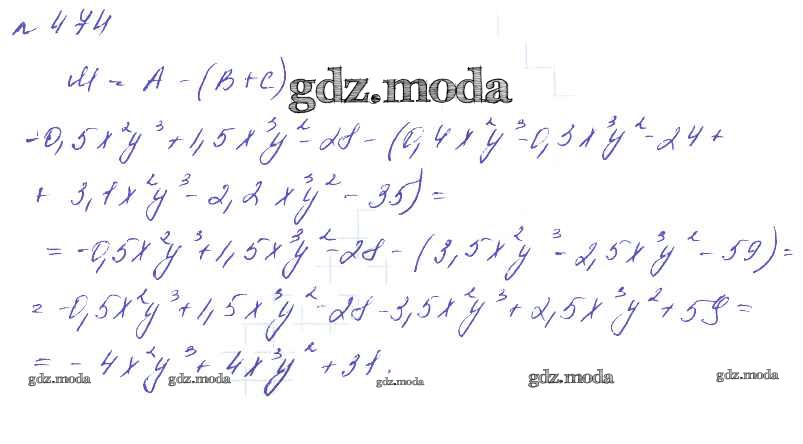 n 474
M = A - (B+C)
gdz.moda
-0,5x²y³+1,5x³y²-28-(0,4x²y³-0,3x³y²-24+
+ 3,1x²y³-2,2x³y²-35)=
=-0,5x²y³+1,5x³y²-28-(3,5x²y³-2,5x³y²-59)=
=-0,5x²y³+1,5x³y²-28-3,5x²y³+2,5x³y²+59=
=-4x²y³+4x³y²+31.
gdz.moda gdz.moda gdz.moda gdz.moda gdz.moda